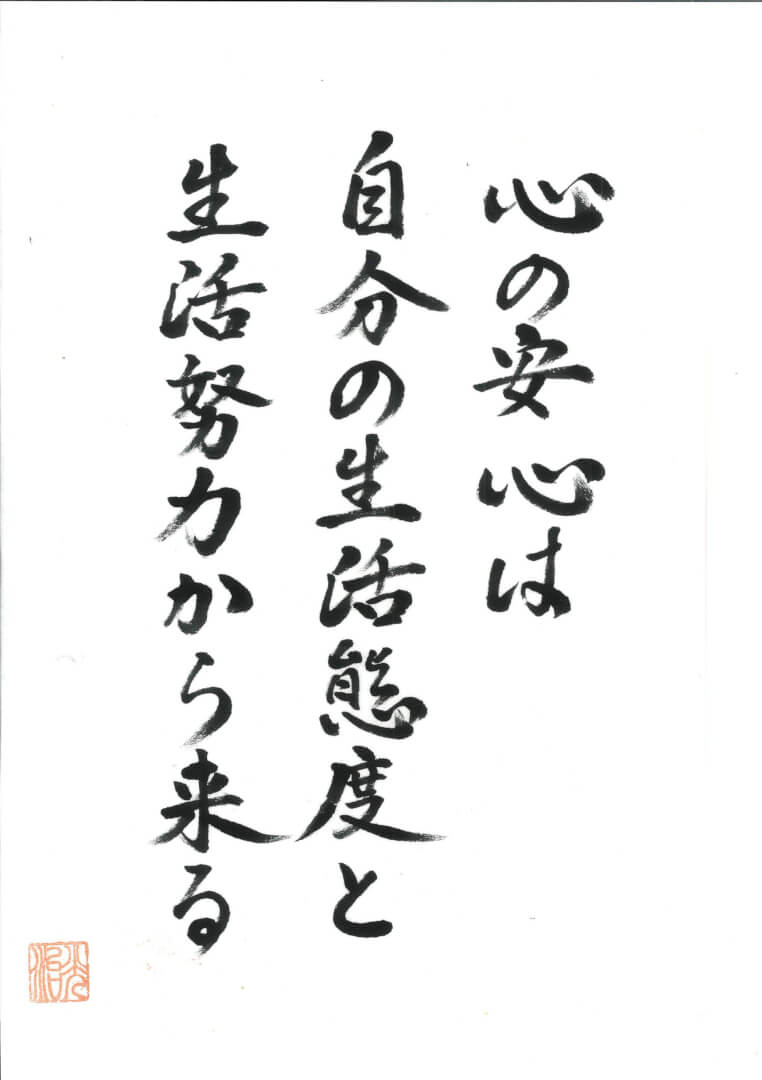 心の安心は
自分の生活態度と
生活努力から来る